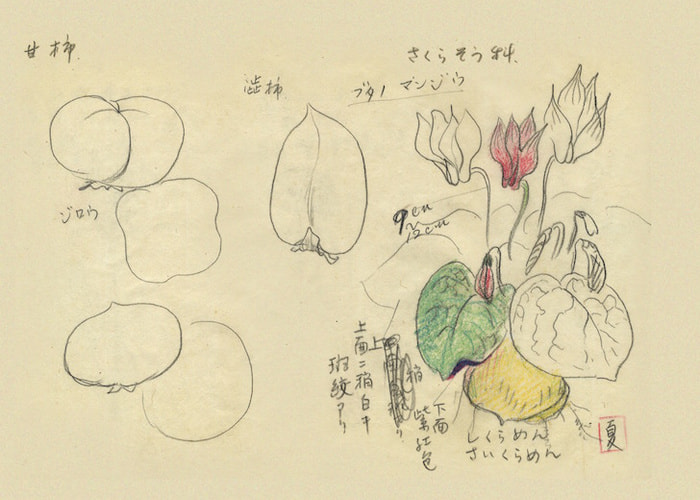 甘柿
さくらそう科
澁柿
ブタノ マンジウ
ジロウ
9cm
12cm
上面ニ稍白キ
斑紋アリ
下面
紫紅色
しくらめん
さいくらめん
夏